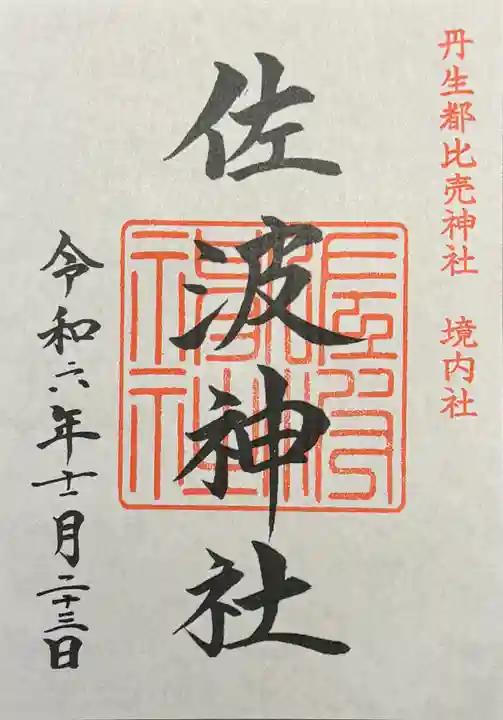 丹生都比売神社 境内社
佐波神社
令和六年十一月二十三日